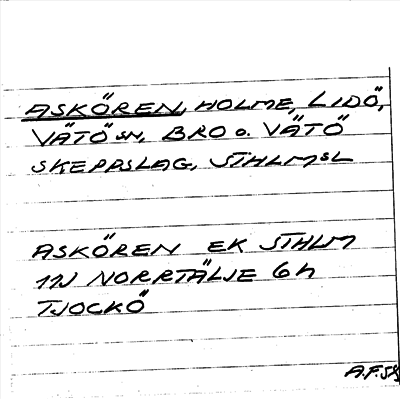 ASKÖREN, HOLME, LIDÖ,
VÄTÖ SN, BRO O. VÄTÖ
SKEPPSLAG, STHLMSL
ASKÖREN EK STHLM
11J NORRTÄLJE 6h
TJOCKÖ